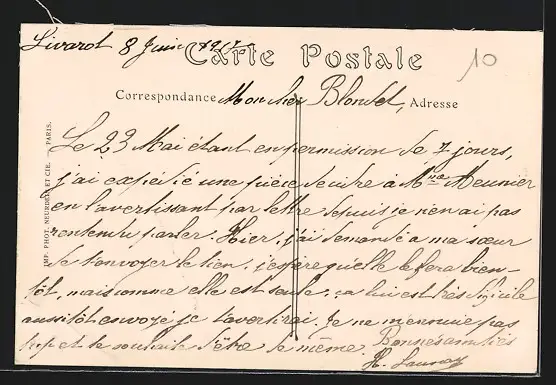 Livarot 8 Juin 1917
Carte Postale
10
Correspondance Mon cher Blondet, Adresse
Le 23 Mai étant en permission de 7 jours,
j'ai expédié une pièce de cidre à Mme Meunier
en l'avertissant par lettre depuis je n'en ai pas
rentendu parler. Hier, j'ai demandé a ma sœur
de t'envoyer le tien, j'espère qu'elle le fera bien-
tôt, mais comme elle est seule, ça lui est très difficile
aussitôt envoyé je t'avertirai. Je ne m'ennuie pas
trop et te souhaite d'être de même. Bonnes amitiés
H.
IMP. PHOT. NEURDEIN ET CIE. — PARIS.